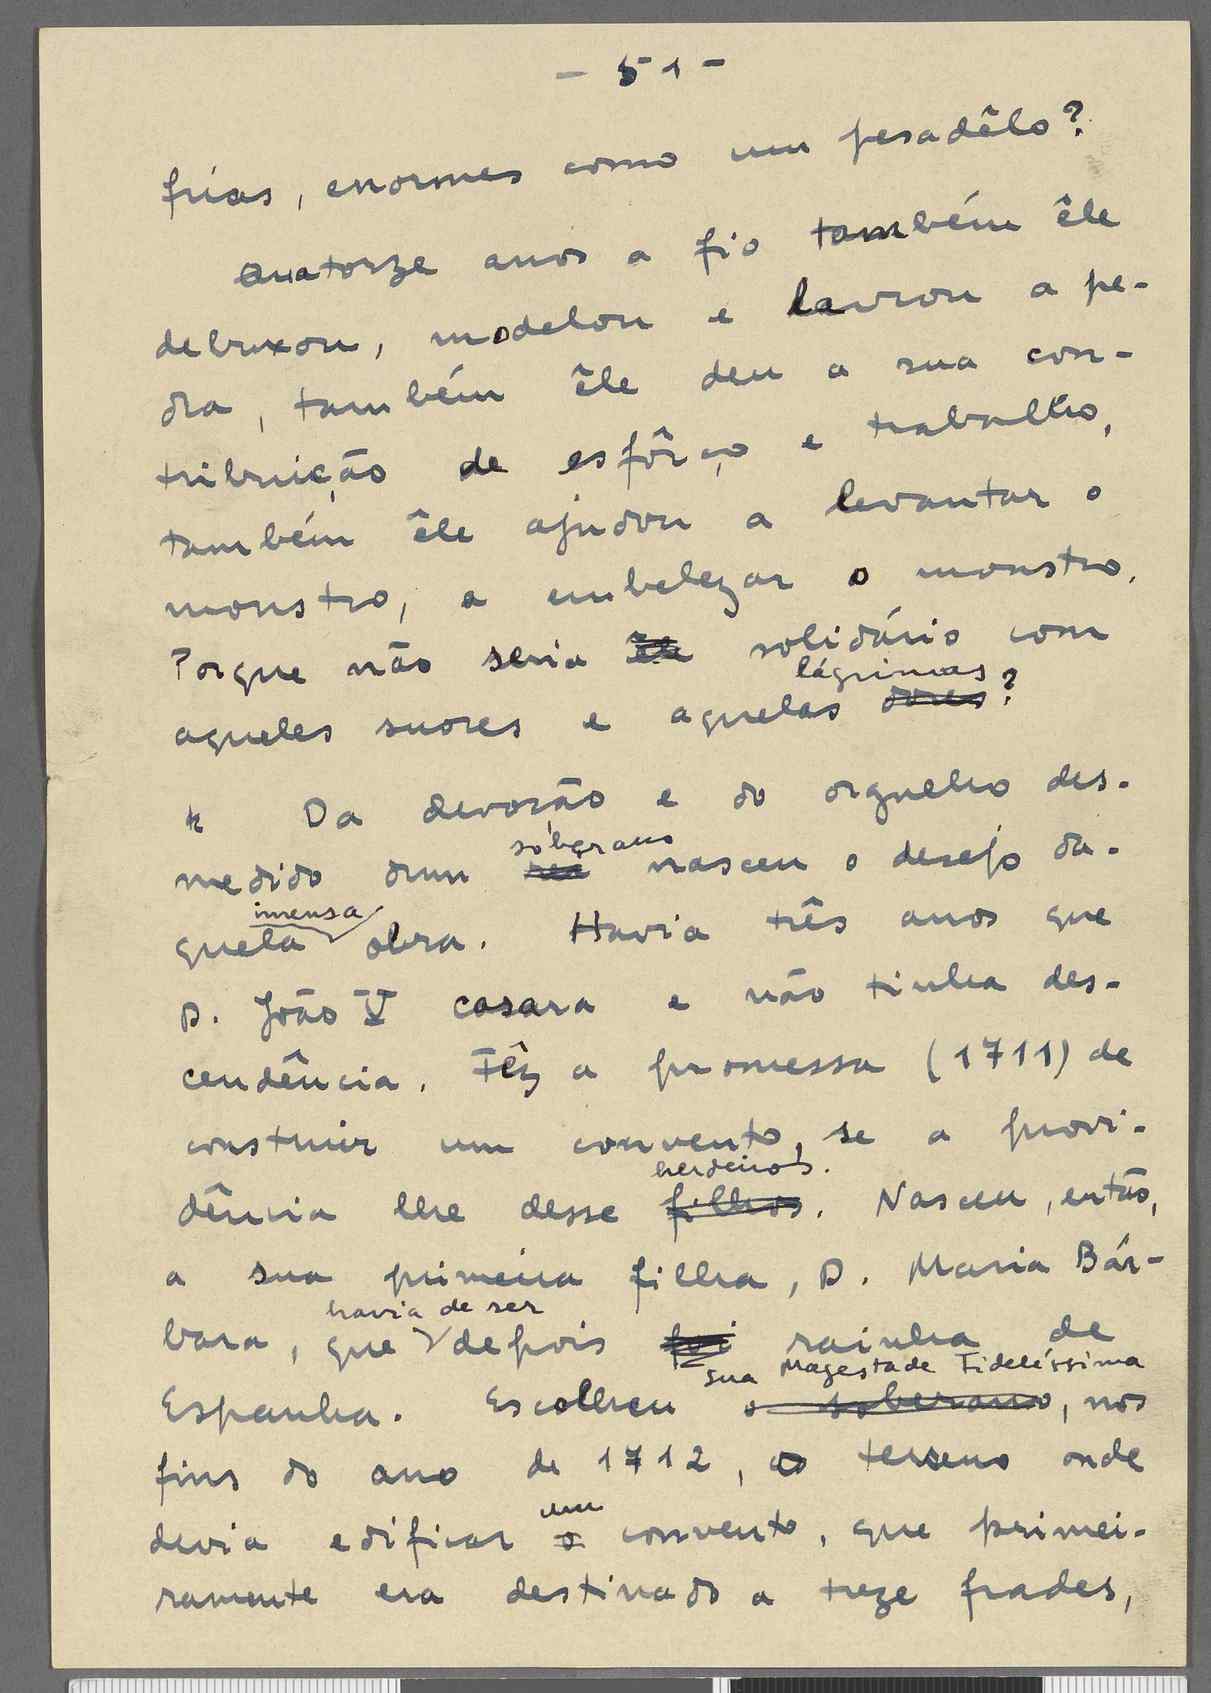 - 51 -
frias, enormes como um pesadêlo?
Quatorze anos a fio também êle
debuxou, modelou e lavrou a pe-
dra, também êle deu a sua con-
tribuição de esfôrço e trabalho,
também êle ajudou a levantar o
monstro, a embelezar o monstro.
Porque não seria êle solidário com
lágrimas
aqueles suores e aquelas dores?
Da devoção e do orgulho des-
soberano
medido dum rei nasceu o desejo da-
imensa
quela obra. Havia três anos que
D. João V casara e não tinha des-
cendência. Fêz a promessa (1711) de
construir um convento, se a provi-
herdeiros.
dência lhe desse filhos. Nasceu, então,
a sua primeira filha, D. Maria Bár-
havia de ser
bara, que depois foi rainha de
Sua Magestade Fidelíssima
Espanha. Escolheu o soberano, nos
fins do ano de 1712, o terreno onde
um
devia edificar o convento, que primei-
ramente era destinado a treze frades,